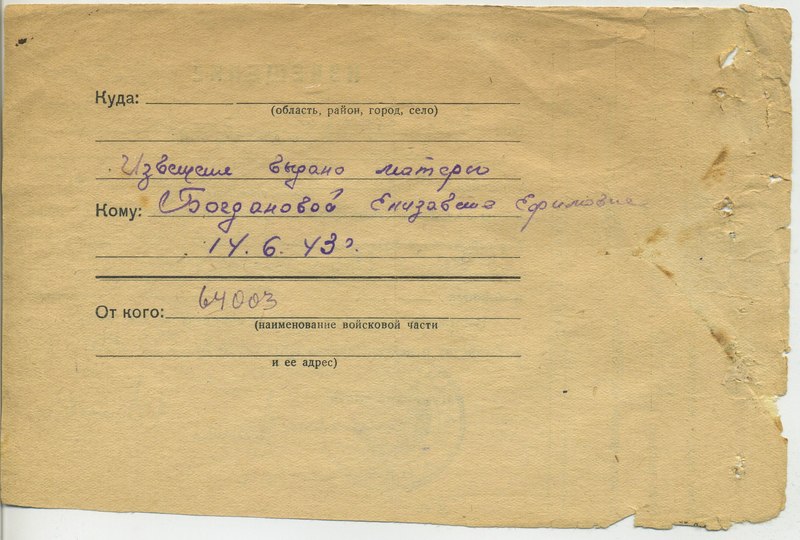 Куда:
(область, район, город, село)
Извещения выдано матери
Кому: Богдановой Елизавете Ефимовне
14.6.43г.
От кого: 64003
(наименование войсковой части
и ее адрес)